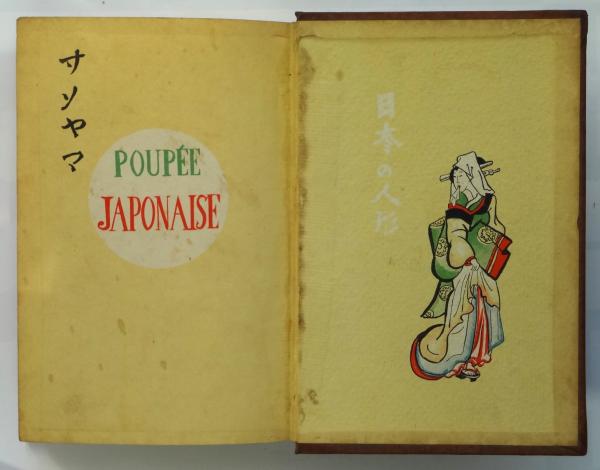 サソヤマ
POUPÉE
JAPONAISE
日本の人形